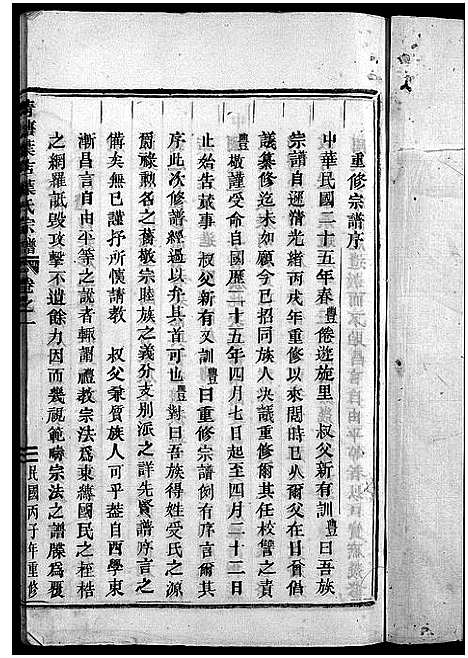 重修宗譜序
中華民國二十五年春豐倦遊旋里 叔父新有訓豐曰吾族
宗譜自遜清光緒丙戌年重修以來閱時已久爾父在日曾倡
議纂修迄未如願今已招同族人決議重修爾其任校讐之責
豐敬謹受命自國歷二十五年四月七日起至四月二十二日
止始告蕆事 叔父新有又訓豐曰重修宗譜例有序言爾其
序此次修譜經過以弁其首可也豐對曰吾族得姓受氏之源
爵祿勲名之蕃敬宗睦族之義分支別派之詳先賢譜序言之
備矣無已謹抒所懷請教 叔父兼質族人可乎蓋自西學東
漸昌言自由平等之說者輒謝禮教宗法爲東縛國民之桎梏
之網羅詆毀攻擊不遺餘力因而幾視範疇宗法之譜牒爲覆
葉氏宗譜
卷之一
民國丙子年重修